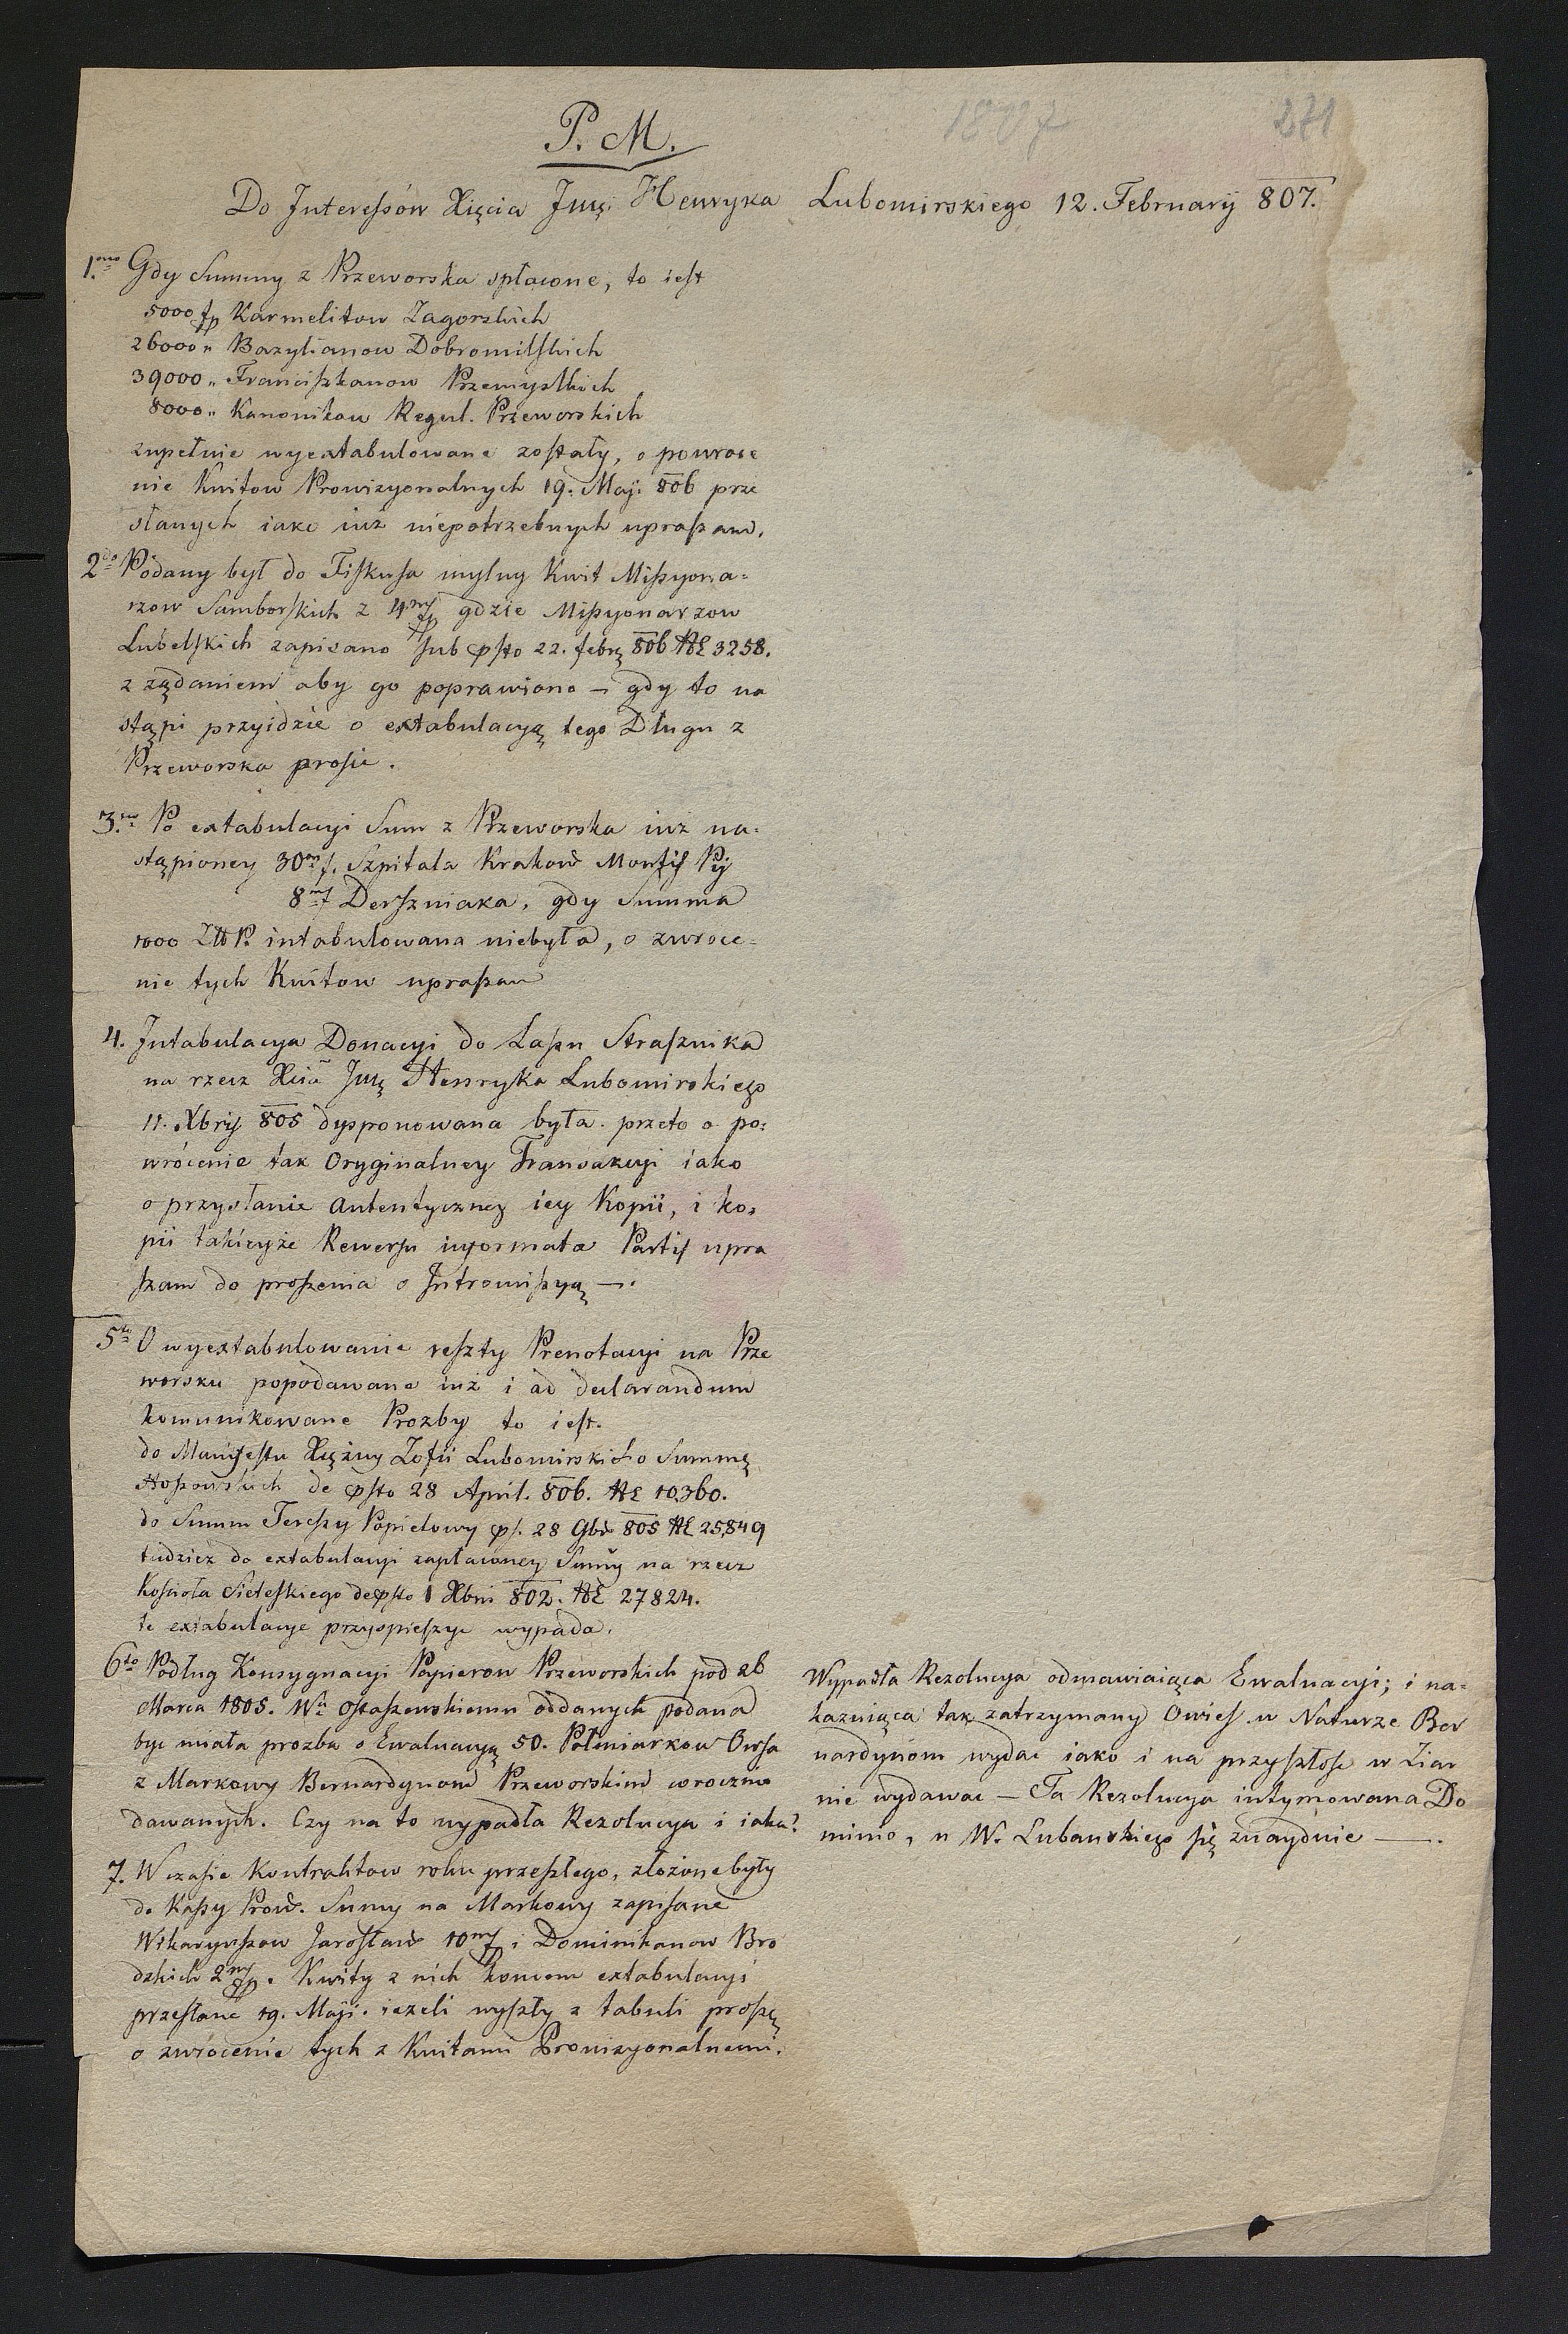 1807 271
P. M.
Do Interessów Xięcia Jmci Henryka Lubomirskiego 12. February 807.
1.mo Gdy Summy z Przeworska spłacone, to iest
5000 fp Karmelitow Zagorskich
26000 „ Bazylianow Dobromilskich
39000 „ Franciszkanow Przemyslkich
8000 „ Kanonikow Regul. Przeworskich
zupełnie wyextabulowane zostały, o powroce
nie Kwitow Prowizyonalnych 19. Maji 806 prze
słanych iako iuż niepotrzebnych upraszam.
2do Podany był do Fiskusa mylny Kwit Missyona=
rzow Samborskich z 4m fp gdzie Missyonarzow
Lubelskich zapisano sub psto 22. febry 806 3258.
z żądaniem aby go poprawiono – gdy to na
stąpi przyidzie o extabulacyą tego Długu z
Przeworska prosic.
3. Po extabulacyi Sum z Przeworska iuż na=
stąpioney 30m f. Szpitala Krakow Montis Pij
8m f Derszniaka, gdy Summa
1000 Zł P. intabulowana niebyła, o zwroce=
nie tych Kwitow upraszam
4. Intabulacya Donacyi do Lasu Strasznika
na rzecz Xcia Jmci Henryka Lubomirskiego
11. Xbris 805 dysponowana była. przeto o po=
wrócenie tak Oryginalney Transakcyi iako
o przysłanie Autentyczney iey Kopii, i ko=
pii takieyże Rewersu informata Partis upra
szam do proszenia o Intromissyą —.
5to O wyextabulowanie reszty Prenotacyi na Prze
worsku popodawane iuż i ad declarandum
komunikowane Prozby to iest.
do Manifestu Xiężny Zofii Lubomirskich o Summę
de psto 28 April. 806. 10,360.
do Summ Teressy Popielowy ps. 28 9br 805 25,849
tudzież do extabulacyi zapłaconey Summy na rzecz
Kościoła Sieteskiego de psto 1 Xbris 802. 27824.
te extabulacye przyspieszyc wypada.
6to Podług Konsygnacyi Papierow Przeworskich pod 26
Marca 1805. W. Ostaszewskiemu oddanych podana
byc miała prozba o Ewaluacyą 50. Półmiarkow Owsa
z Markowy Bernardynom Przeworskim corocznie
dawanych. Czy na to wypadła Rezolucya i iaka?
Wypadła Rezolucya odmawiaiąca Ewaluacyi; i na=
kazuiąca tak zatrzymany Owies w Naturze Ber
nardynom wydac iako i na przyszłosc w Ziar
nie wydawac — Ta Rezolucya intymowana Do
minio, u W. Lubanskiego się znayduie —.
7. W czasie Kontraktow roku przeszłego, złożone były
do Kassy Prow. Sumy na Markowy zapisane
Wikaryuszow Jarosław 10m fp i Dominikanow Bro
dzkich 2m fp. Kwity z nich koncem extabulacyi
przesłane 19. Maji. ieżeli wyszły z tabuli proszę
o zwrócenie tych z Kwitami Prowizyonalnemi.